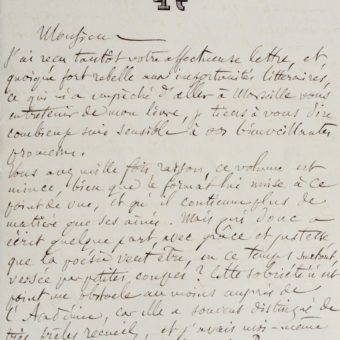 Monsieur
J'ai reçu tantôt votre affectueuse lettre, et
quoique fort rebelle aux importunités littéraires,
ce qui m'a empêché d'aller à Merville vous
entretenir de mon livre, je tiens à vous dire
combien je suis sensible à vos bienveillantes
promesses.
Vous avez mille fois raison, ce volume est
mince, bien que le format lui nuise à ce
point de vue, et qu'il contienne plus de
matière que ses aînés. Mais qui donc a
écrit quelque part, avec grâce et justesse
que la poésie veut être, en ce temps surtout,
versée par petites coupes ? Cette sobriété n'est
point un obstacle au moins auprès de
l'Académie, car elle a souvent distingué de
très grêles recueils, et j'avais moi-même